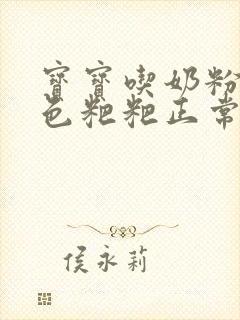 寶寶喫奶粉
色粑粑正常
侯永莉